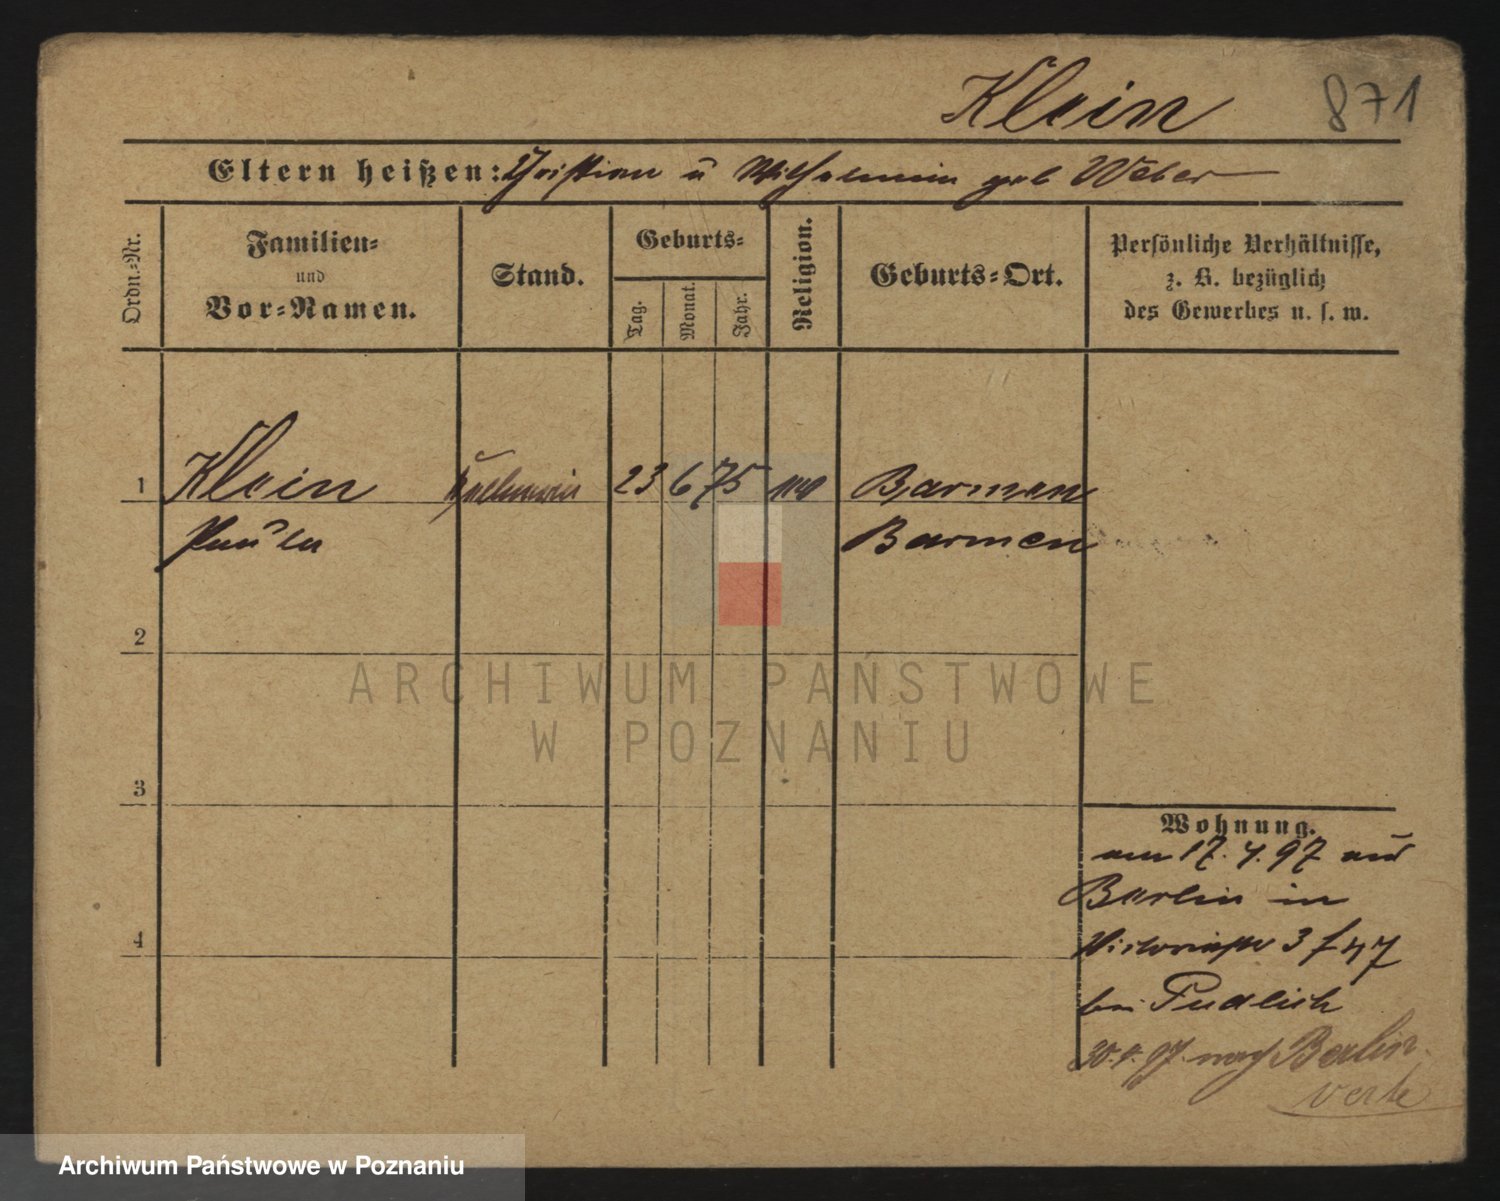 Klein 871
Eltern heißen: Christian u Wilhelmin geb Weber
Ordn.-Nr.
Familien-
und
Vor-Namen.
Stand.
Geburts-
Tag.
Monat.
Jahr.
Religion.
Geburts-Ort.
Persönliche Verhältnisse,
z. B. bezüglich
des Gewerbes u. s. w.
1 Klein 23 6 75 Barmen
Paula Barmen
2
ARCHIWUM PAŃSTWOWE
W POZNANIU
3
Wohnung.
am 17. 4. 97 aus
Berlin in
4
Victoriastr 3
bei Pudlich
30. 4. 97. nach Berlin.
verte
Archiwum Państwowe w Poznaniu